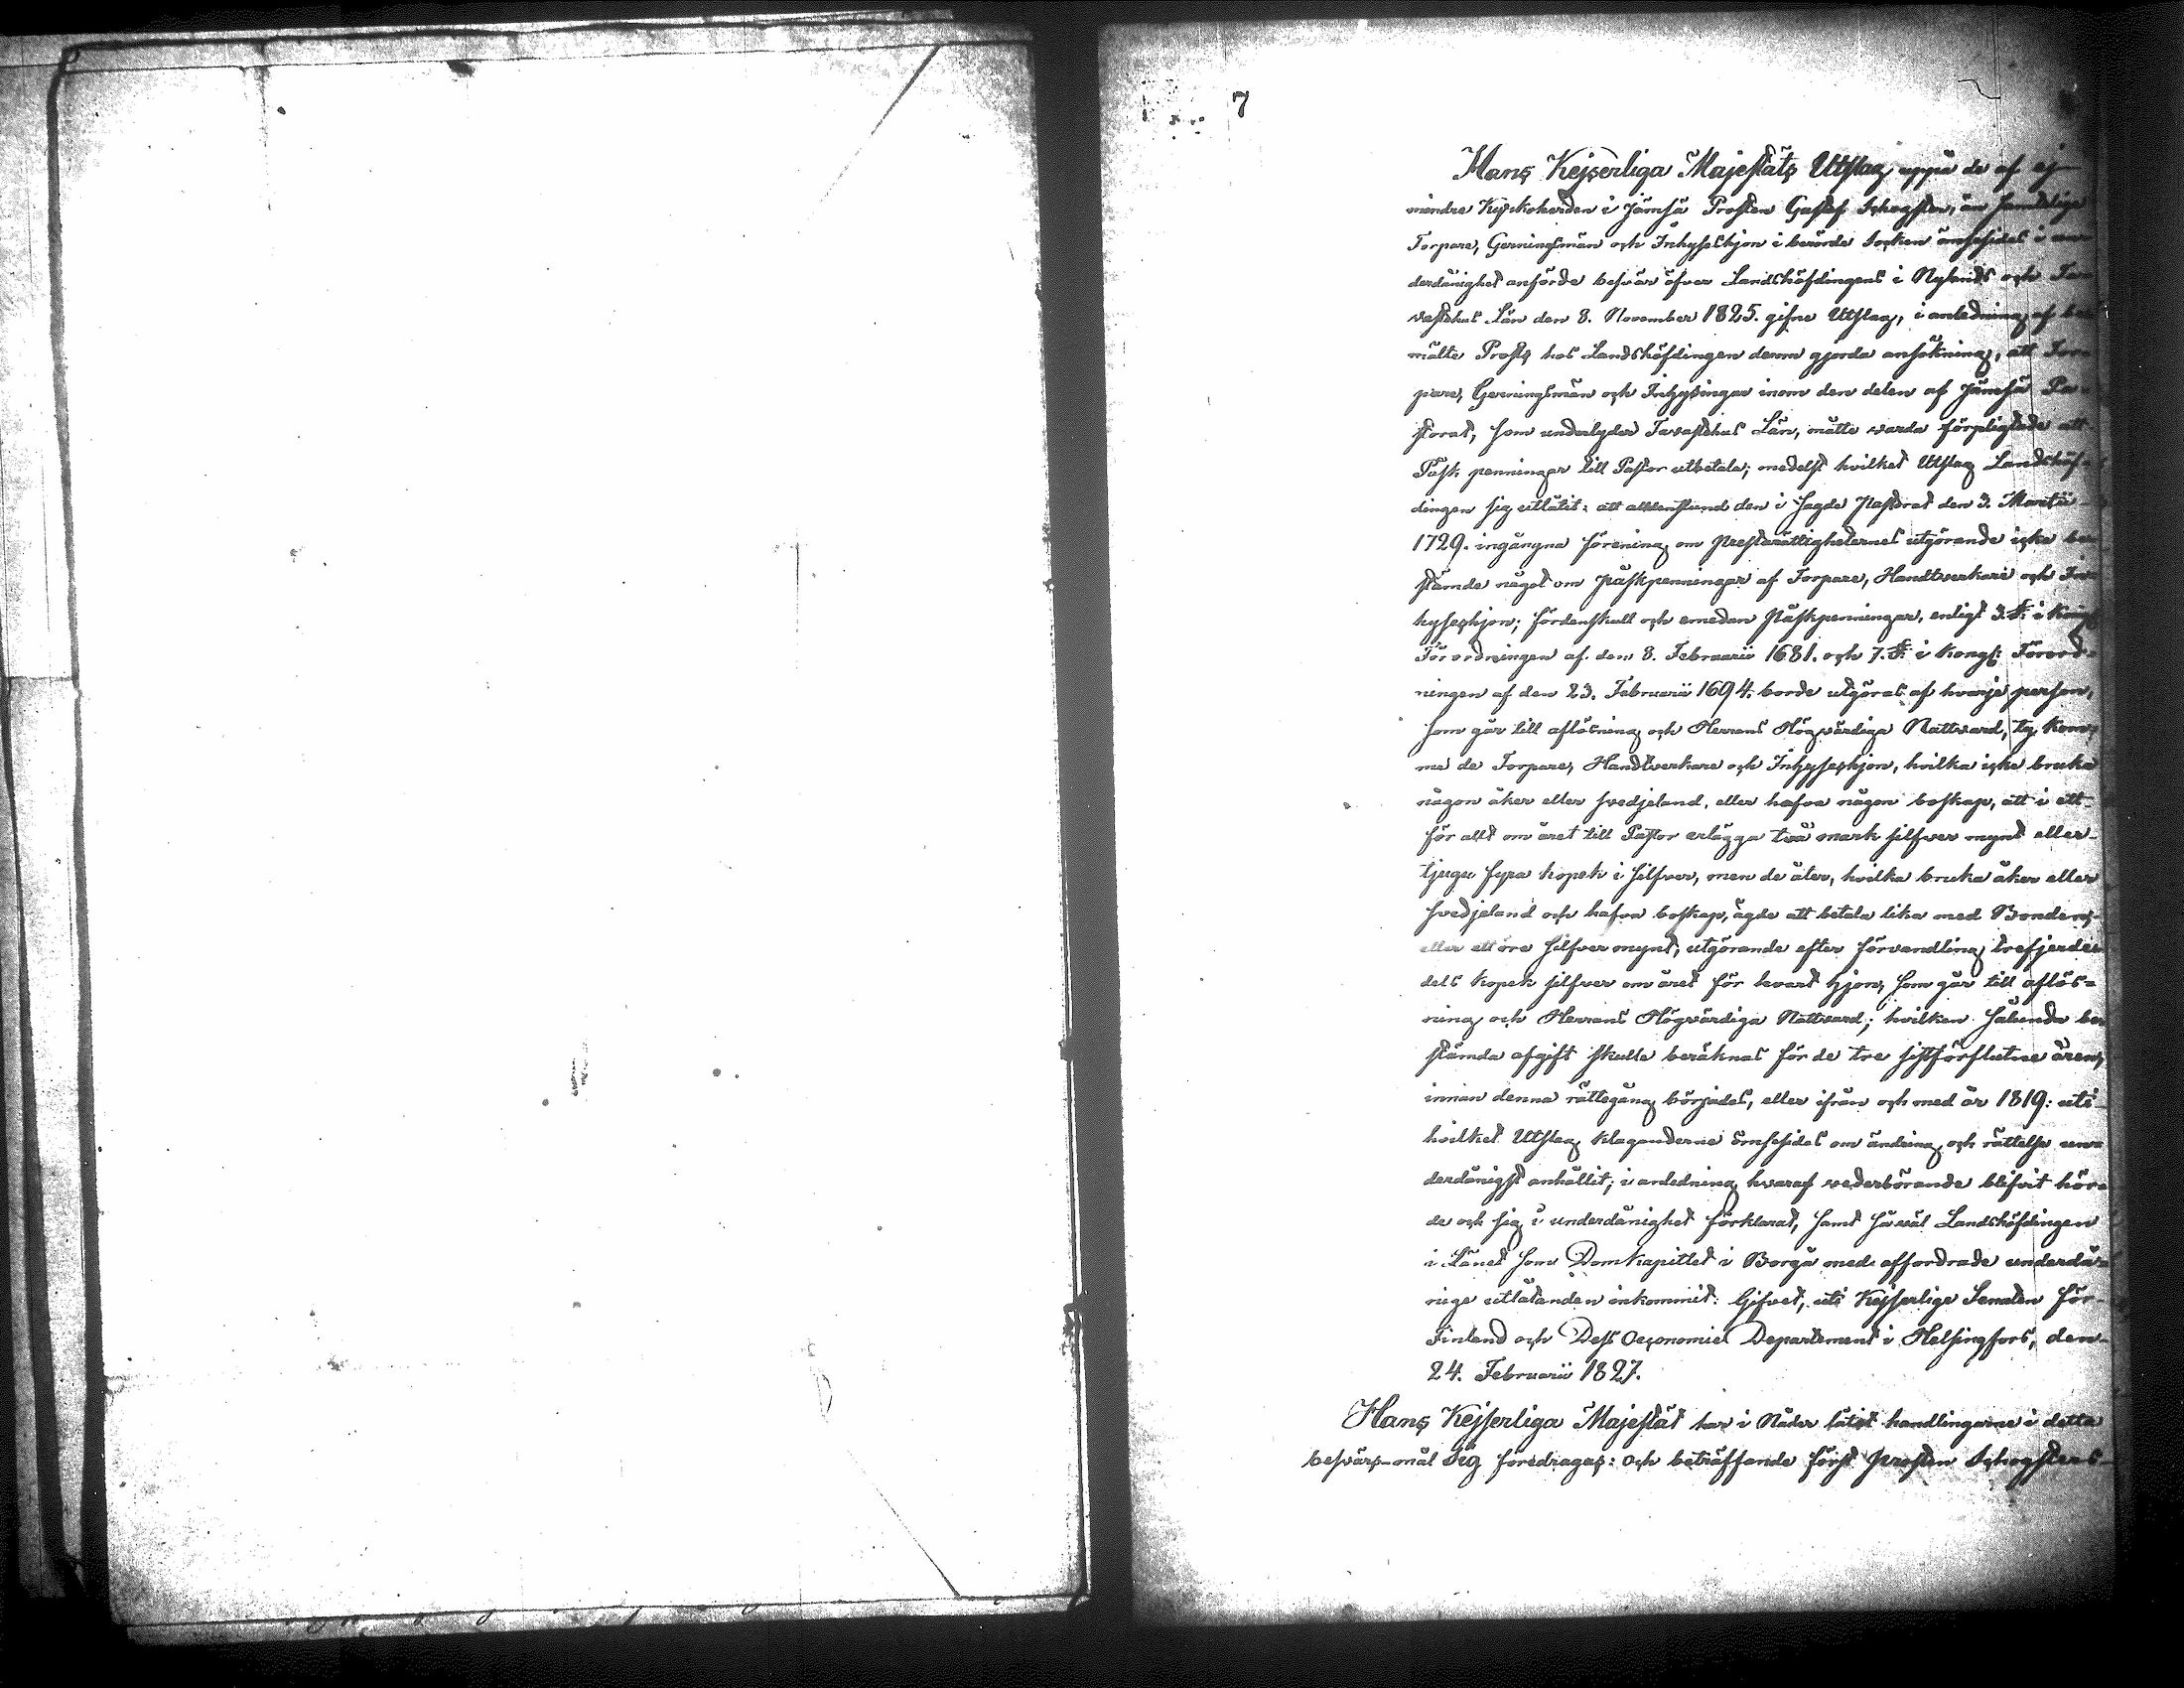 7
Hans Kejserliga Majestäts Utslag uppå de af ej
mindre Kyrkoherden i Jämsä Prosten Gustaf Schogsten, än samtelige
Torpare, Gerningsmän och Inhyseshjon i berörde Socken ömsesides i un-
derdånighet anförde besvär öfver Landshöfdingens i Nylands och Ta-
vastehus Län den 8. November 1825. gifne Utslag, i anledning af be-
mälte Prosts hos Landshöfdingen derom gjorda ansökning, att Tor-
pare, Gerningsmän och Inhysingar inom den delen af Jämsä Pa-
storat, som underlyder Tavastehus Län, måtte varda förpligtade att
Påsk penningar till Pastor utbetala; medelst hvilket Utslag Landshöf-
dingen sig utlåtit: att alldenstund den i sagde Pastorat den 3. Martii
1729. ingångna förening om Prestarättigheternes utgörande icke be-
stämde något om Påskpenningar af Torpare, Handtverkare och In-
hyseshjon; fördenskull och emedan Påskpenningar, enligt 3. §. i Kongl.
Förordningen af den 8. Februarii 1681. och 7. §. i Kongl: Förord-
ningen af den 23. Februarii 1694. borde utgöras af hvarje person,
som går till aflösning och Herrans Högvärdiga Nattvard, ty kom-
me de Torpare, Handtverkare och Inhyseshjon, hvilka icke bruka
någon åker eller svedjeland, eller hafva någon boskap, att i ett
för allt om året till Pastor erlägga två mark silfver mynt eller
tjugu fyra kopek i silfver, men de åter, hvilka bruka åker eller
svedjeland och hafva boskap, ägde att betala lika med Bonden,
eller ett öre silfver mynt, utgörande efter förvandling trefjerde-
dels kopek silfver om året för hvart hjon, som går till aflös-
ning och Herrans Högvärdiga Nattvard; hvilken sålunda be-
stämda afgift skulle beräknas för de tre sistförflutne åren,
innan denna rättegång börjades, eller ifrån och med år 1819: uti
hvilket Utslag klaganderne ömsesides om ändring och rättelse un-
derdånigst anhållit; i anledning hvaraf vederbörande blifvit hör-
de och sig i underdånighet förklarat, samt såväl Landshöfdingen
i Länet som Domkapitlet i Borgå med affordrade underdå-
nige utlåtanden inkommit: Gifvet, uti Kejserlige Senaten för
Finland och Dess Oeconomie Departement i Helsingfors, den
24. Februarii 1827.
Hans Kejserliga Majestät har i Nåder låtit handlingarne i detta
besvärs-mål Sig föredragas: och beträffande först Prosten Schogstens